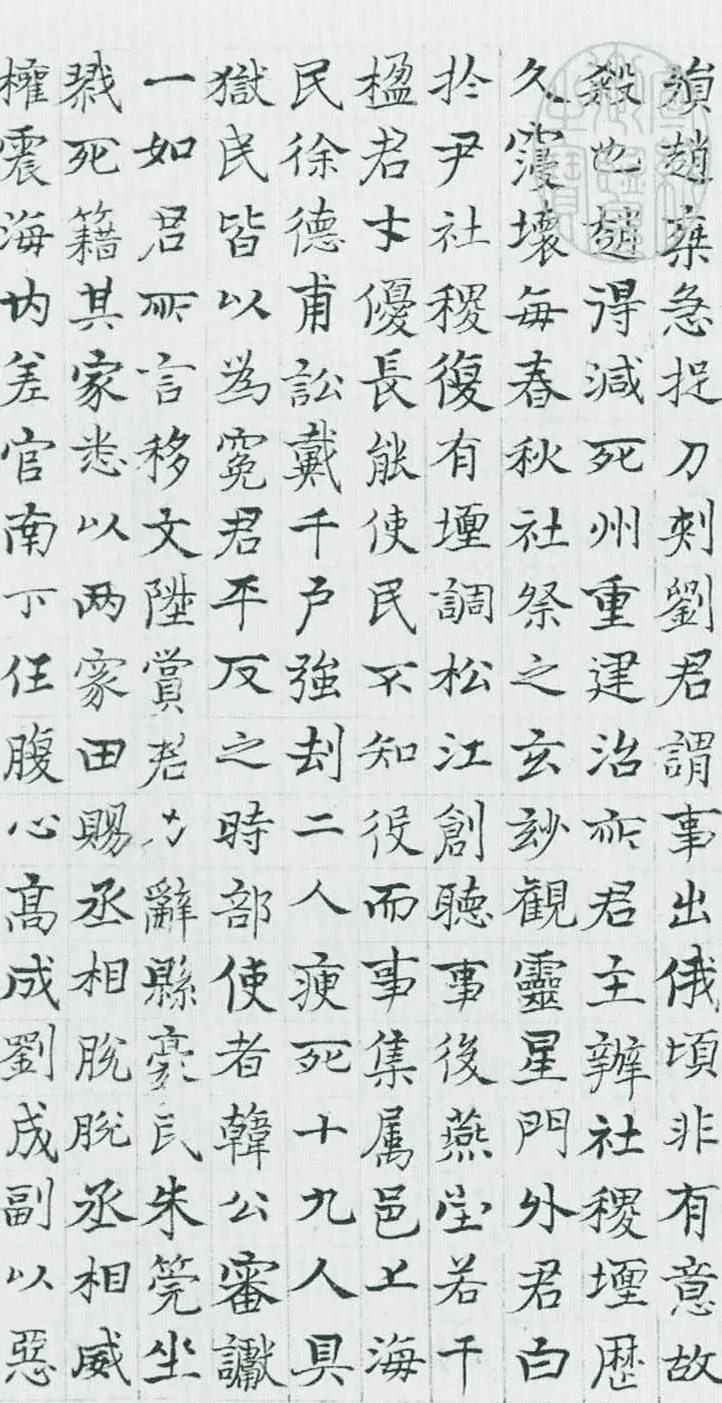 湏趙棄急捉刀刺劉君謂事出俄頃非有意故
殺也趙得減死州重建治所君主辦社稷壇歷
久寖壞每春秋社祭之玄妙觀靈星門外君白
於尹社稷復有壇調松江創聽事後燕堂若干
楹君才優長能使民不知役而事集属邑上海
民徐德甫訟戴千戶強刦二人瘐死十九人具
獄民皆以為冤君平反之時部使者韓公審讞
一如君所言移文陞賞君力辭縣豪民朱筦坐
戮死籍其家悉以两家田賜丞相脫脫丞相威
權震海內差官南下任腹心高成劉成副以惡